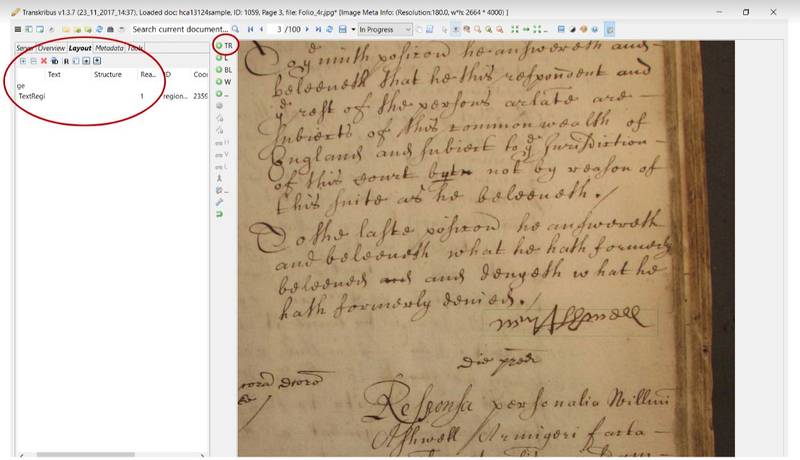 Transkribus v1.3.7 (23_11_2017_14:37), Loaded doc: hca13124sample, ID: 1059, Page 3, file: Folio_4r.jpg* [Image Meta Info: (Resolution:180.0, w*h: 2664 * 4000) ]
Search current document... 3 /100 In Progress
Server Overview Layout Metadata Tools
Text Structure Rea... ID Coor
ge
TextRegi 1 region... 2359
TR
L
BL
W
...
H
V
L
...
To ye ninth posicon he answereth and
beleeueth that he this respondent and
ye rest of the persons arlate are
Subiects of this common wealth of
England and subiect to ye Jurisdiction
of this court but not by reason of
this suite as he beleeueth./
To the laste posicon he answereth
and beleeueth what he hath formerly
beleeued and and denyeth what he
hath formerly denied./
Wm Ashwell
die pred
Responsa personalia Willmi
Ashwell Armigeri facta